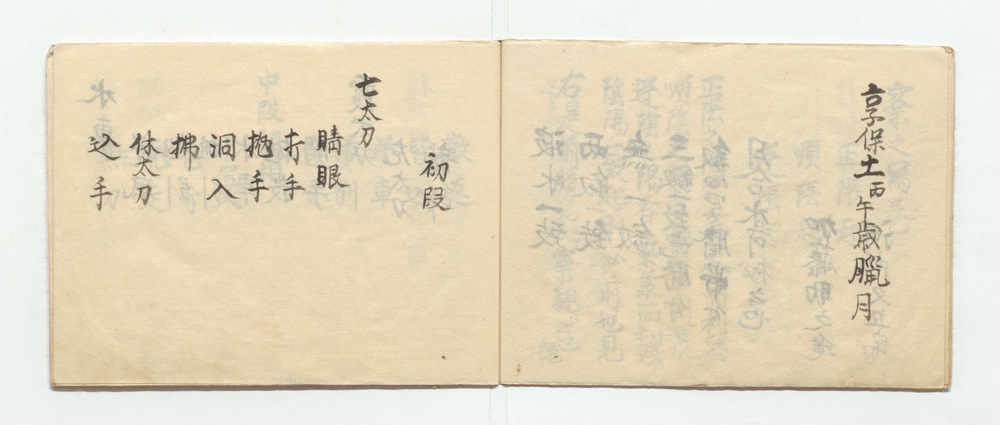 享保十一丙午歳臘月
初段
七太刀
睛眼
打手
抛手
洞入
拂
休太刀
込手